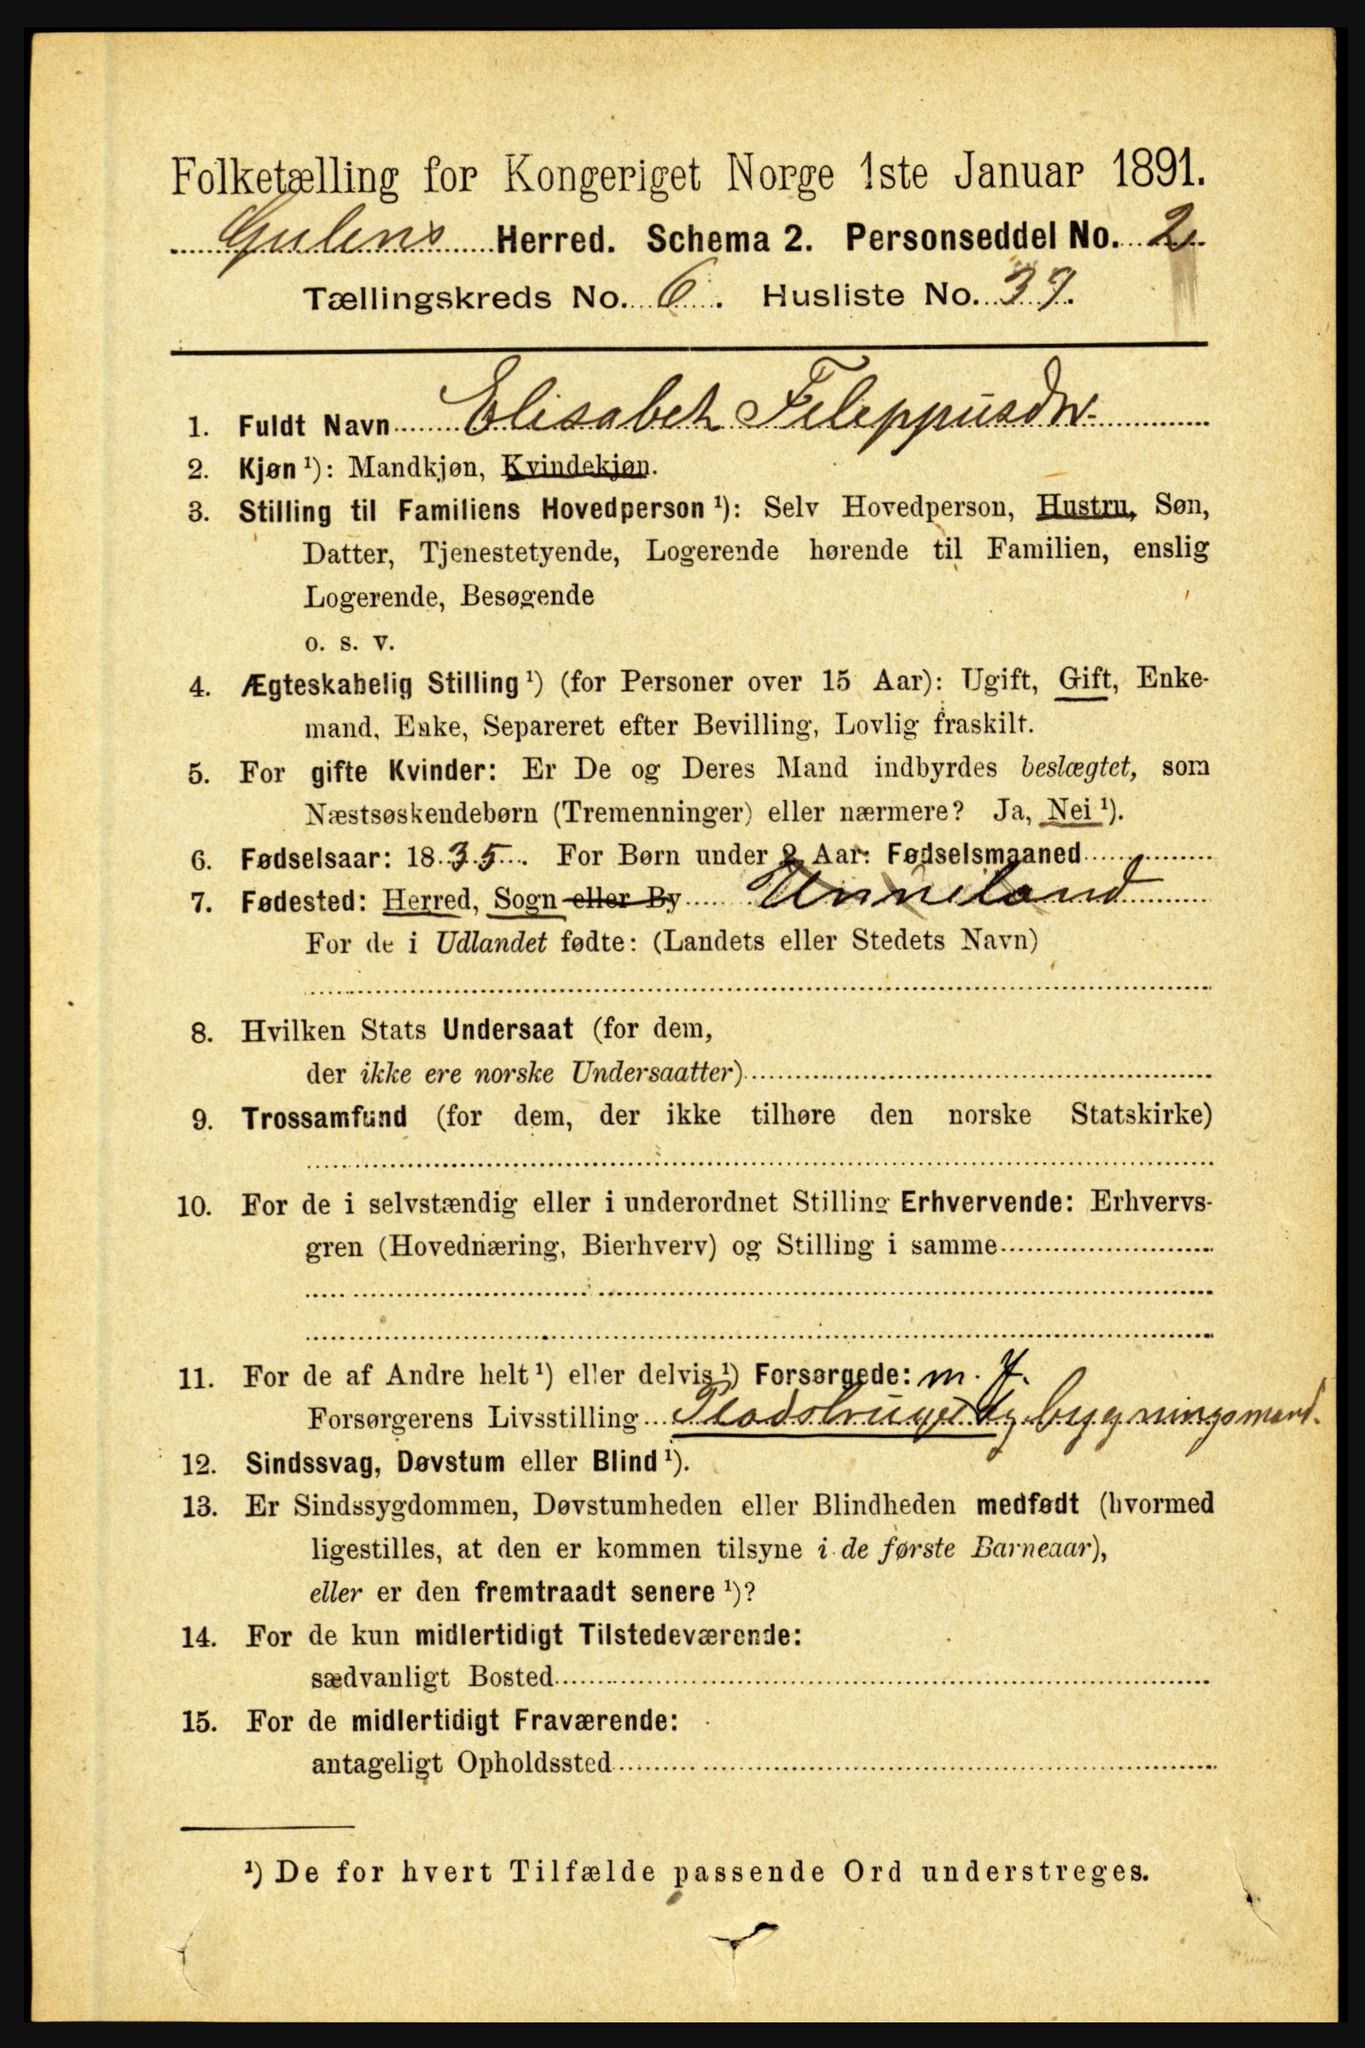 Folketælling for Kongeriget Norge 1ste Januar 1891.
Gulens Herred. Schema 2. Personseddel No. 2.
Tællingskreds No. 6. Husliste No. 37.
1. Fuldt Navn Elisabet Fileppusdtr.
2. Kjøn ¹): Mandkjøn, Kvindekjøn.
3. Stilling til Familiens Hovedperson ¹): Selv Hovedperson, Hustru, Søn,
Datter, Tjenestetyende, Logerende hørende til Familien, enslig
Logerende, Besøgende
o. s. v.
4. Ægteskabelig Stilling ¹) (for Personer over 15 Aar): Ugift, Gift, Enke-
mand, Enke, Separeret efter Bevilling, Lovlig fraskilt.
5. For gifte Kvinder: Er De og Deres Mand indbyrdes beslægtet, som
Næstsøskendebørn (Tremenninger) eller nærmere? Ja, Nei ¹).
6. Fødselsaar: 1835. For Børn under 2 Aar: Fødselsmaaned
7. Fødested: Herred, Sogn eller By
For de i Udlandet fødte: (Landets eller Stedets Navn)
8. Hvilken Stats Undersaat (for dem,
der ikke ere norske Undersaatter)
9. Trossamfund (for dem, der ikke tilhøre den norske Statskirke)
10. For de i selvstændig eller i underordnet Stilling Erhvervende: Erhvervs-
gren (Hovednæring, Bierhverv) og Stilling i samme
11. For de af Andre helt ¹) eller delvis ¹) Forsørgede: m. J.
Forsørgerens Livsstilling Pladsbruger og bygningsmand.
12. Sindssvag, Døvstum eller Blind ¹).
13. Er Sindssygdommen, Døvstumheden eller Blindheden medfødt (hvormed
ligestilles, at den er kommen tilsyne i de første Barneaar),
eller er den fremtraadt senere ¹)?
14. For de kun midlertidigt Tilstedeværende:
sædvanligt Bosted
15. For de midlertidigt Fraværende:
antageligt Opholdssted
¹) De for hvert Tilfælde passende Ord understreges.